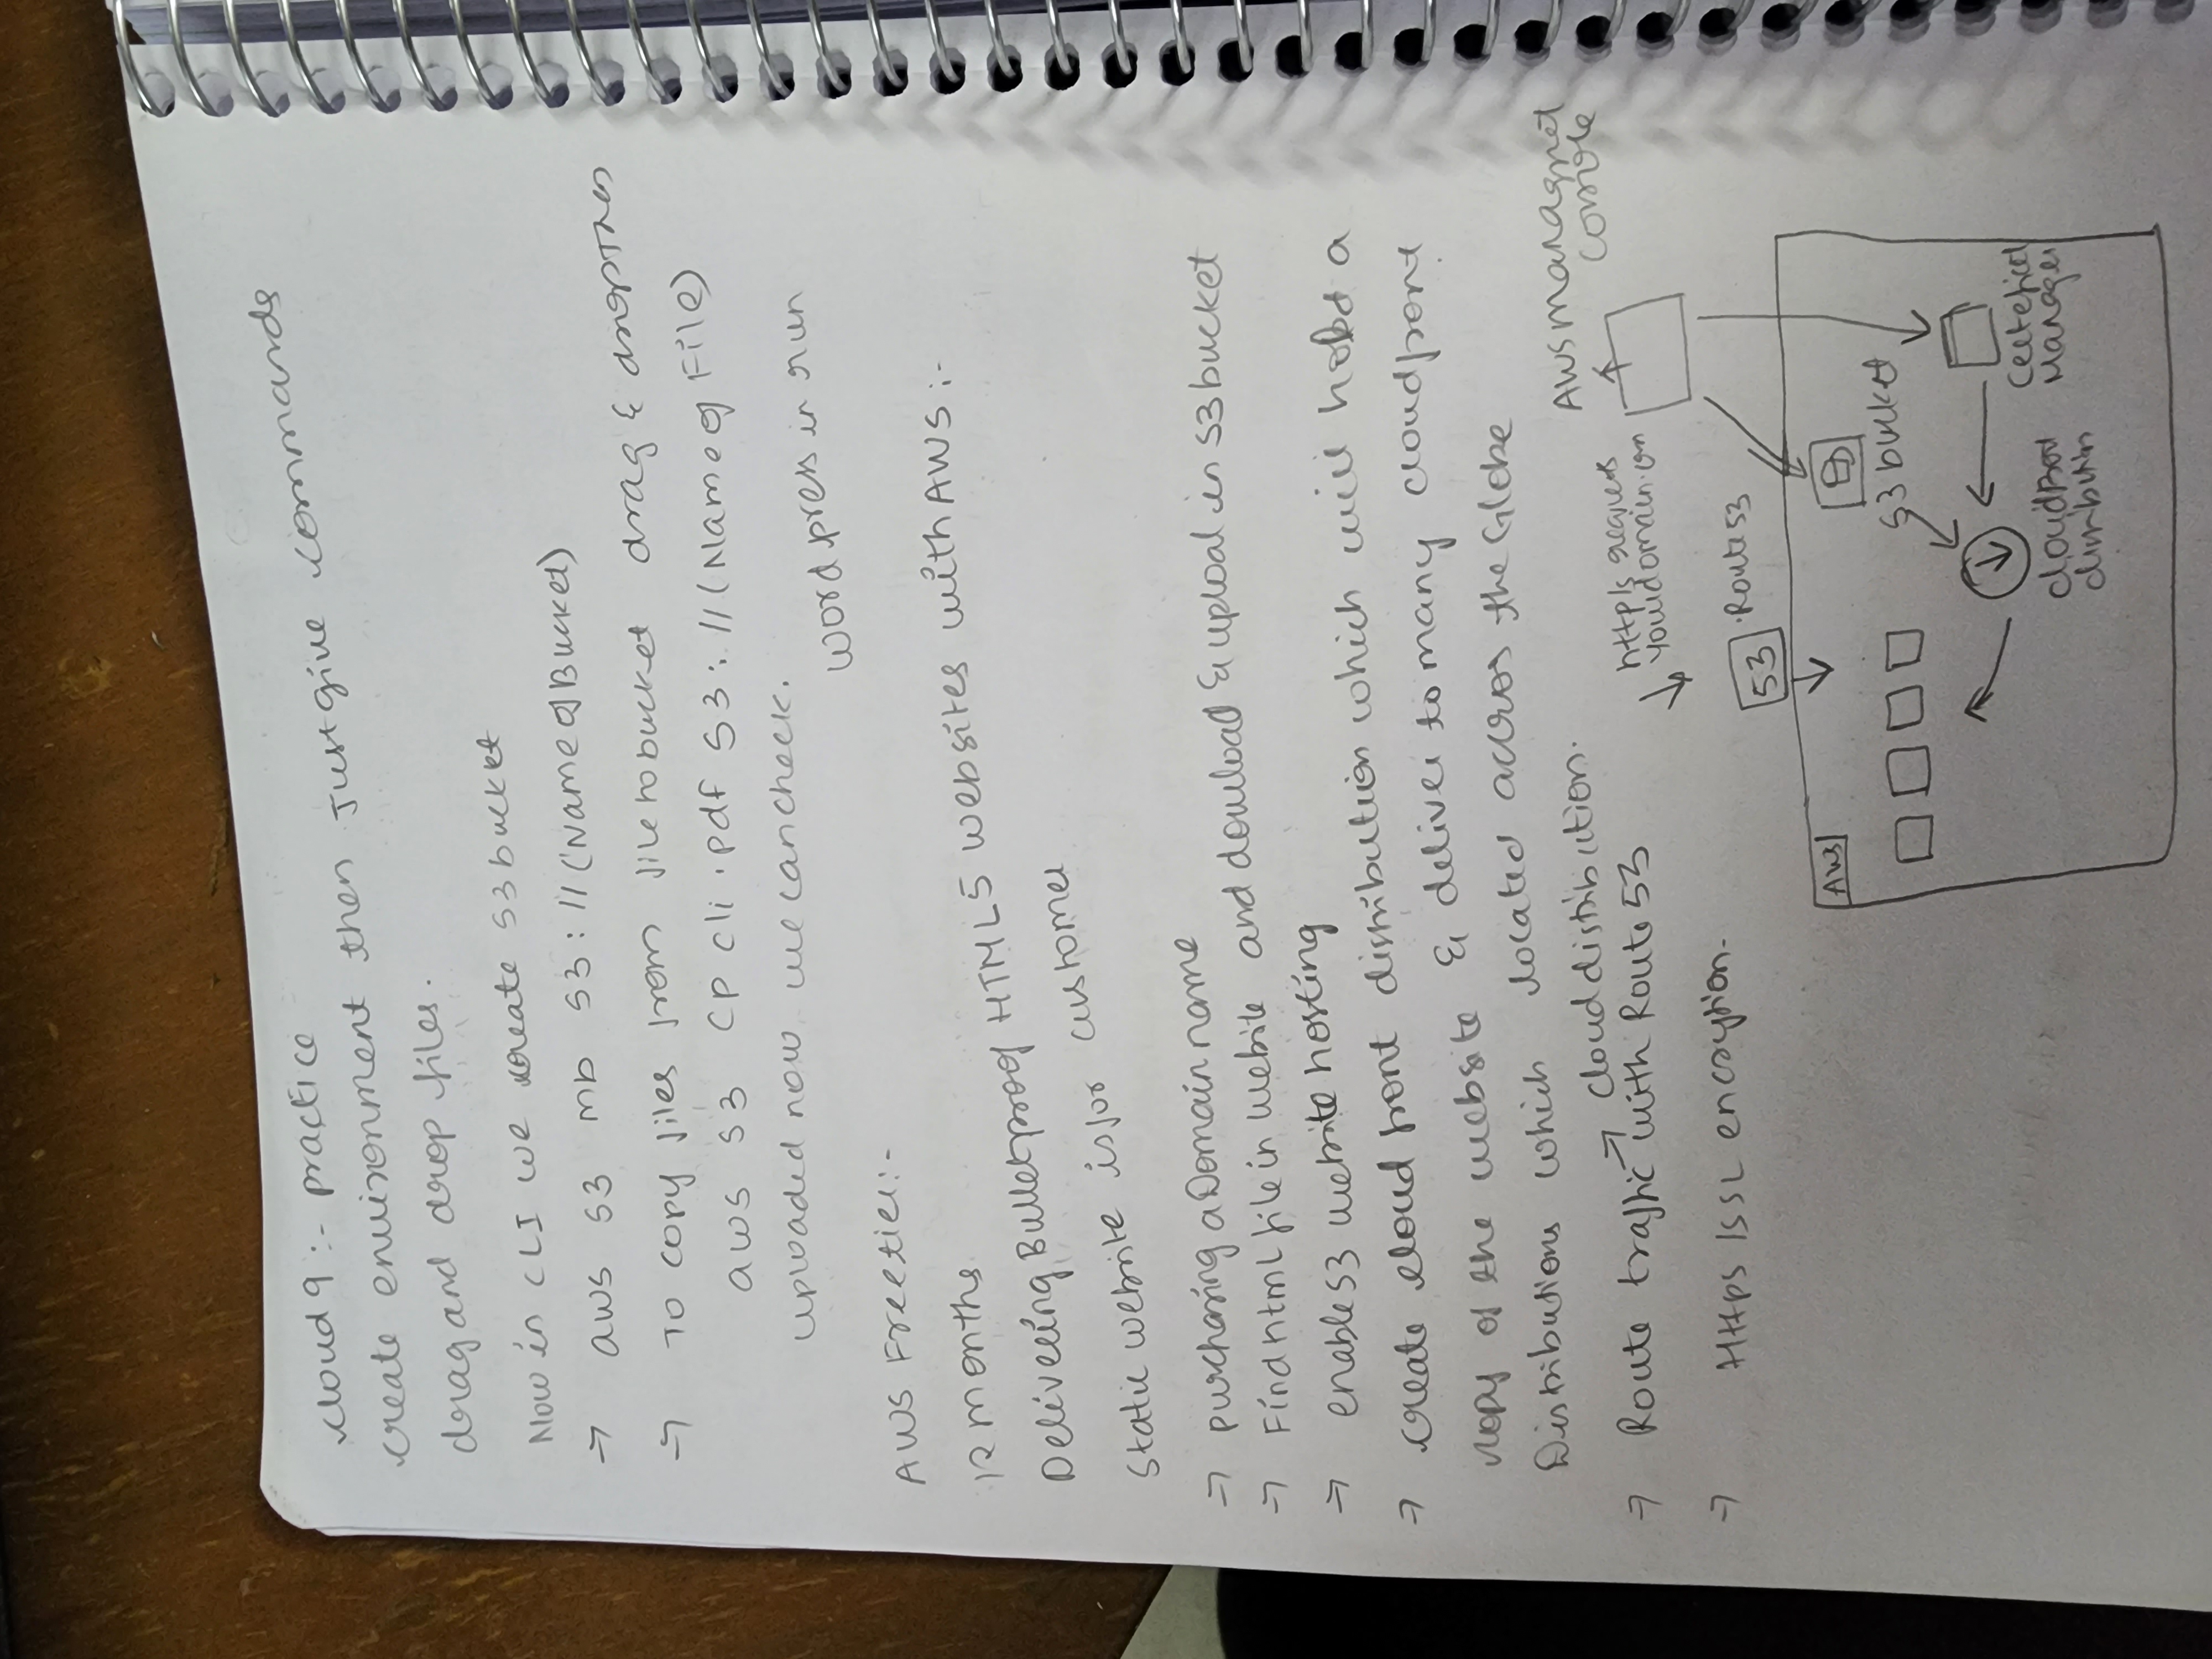 cloud 9 :- practice
create environment then Just give commands
drag and drop files.
Now in CLI we create S3 bucket
→ aws s3 mb s3://(Name of Bucket)
→ To copy files from file to bucket drag & drop then
aws s3 cp cli.pdf s3://(Name of File)
uploaded now we can check.
word press in run
AWS Freetier:-
12 months
Delivering Bulletproof HTML5 websites with AWS :-
Static website is for customer
→ purchasing a Domain name
→ Find html file in website and download & upload in S3 bucket
→ enable S3 website hosting
→ create cloud front distribution which will hold a
copy of the website & deliver to many cloudfront
Distributions which located accros the Globe
→ cloud distribution.
→ Route traffic with Route 53
→ Https /SSL encrytion.
AWS managnet
console
http/s requests
yourdomain.com
53 Route 53
AWS
S3 bucket
cloudfront
distribution
Manager